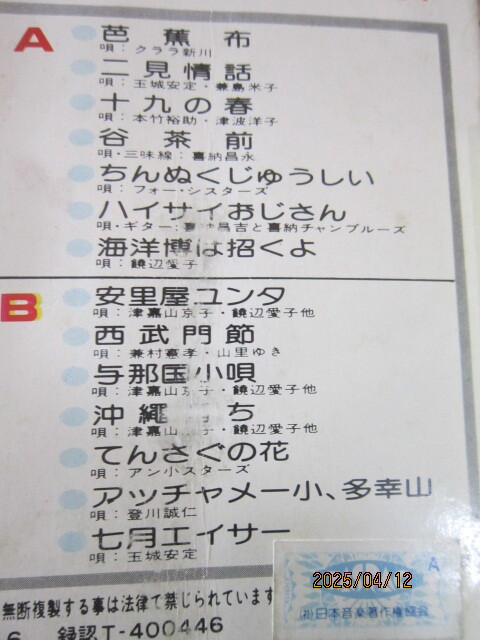 A
芭蕉布
唄：クララ新川
二見情話
唄：玉城安定・兼島米子
十九の春
唄：本竹裕助・津波洋子
谷茶前
唄・三味線：喜納昌永
ちんぬくじゅうしい
唄：フォー・シスターズ
ハイサイおじさん
唄・ギター：喜納昌吉と喜納チャンプルーズ
海洋博は招くよ
唄：饒辺愛子
B
安里屋ユンタ
唄：津嘉山京子・饒辺愛子他
西武門節
唄：兼村憲孝・山里ゆき
与那国小唄
唄：津嘉山 子・饒辺愛子他
沖縄 ち
唄：津嘉山 子・饒辺愛子他
てんさぐの花
唄：アン小スターズ
アッチャメー小、多幸山
唄：登川誠仁
七月エイサー
唄：玉城安定
無断複製する事は法律で禁じられています
録認T-400446
A
2025/04/12
(社)日本音楽著作権協会